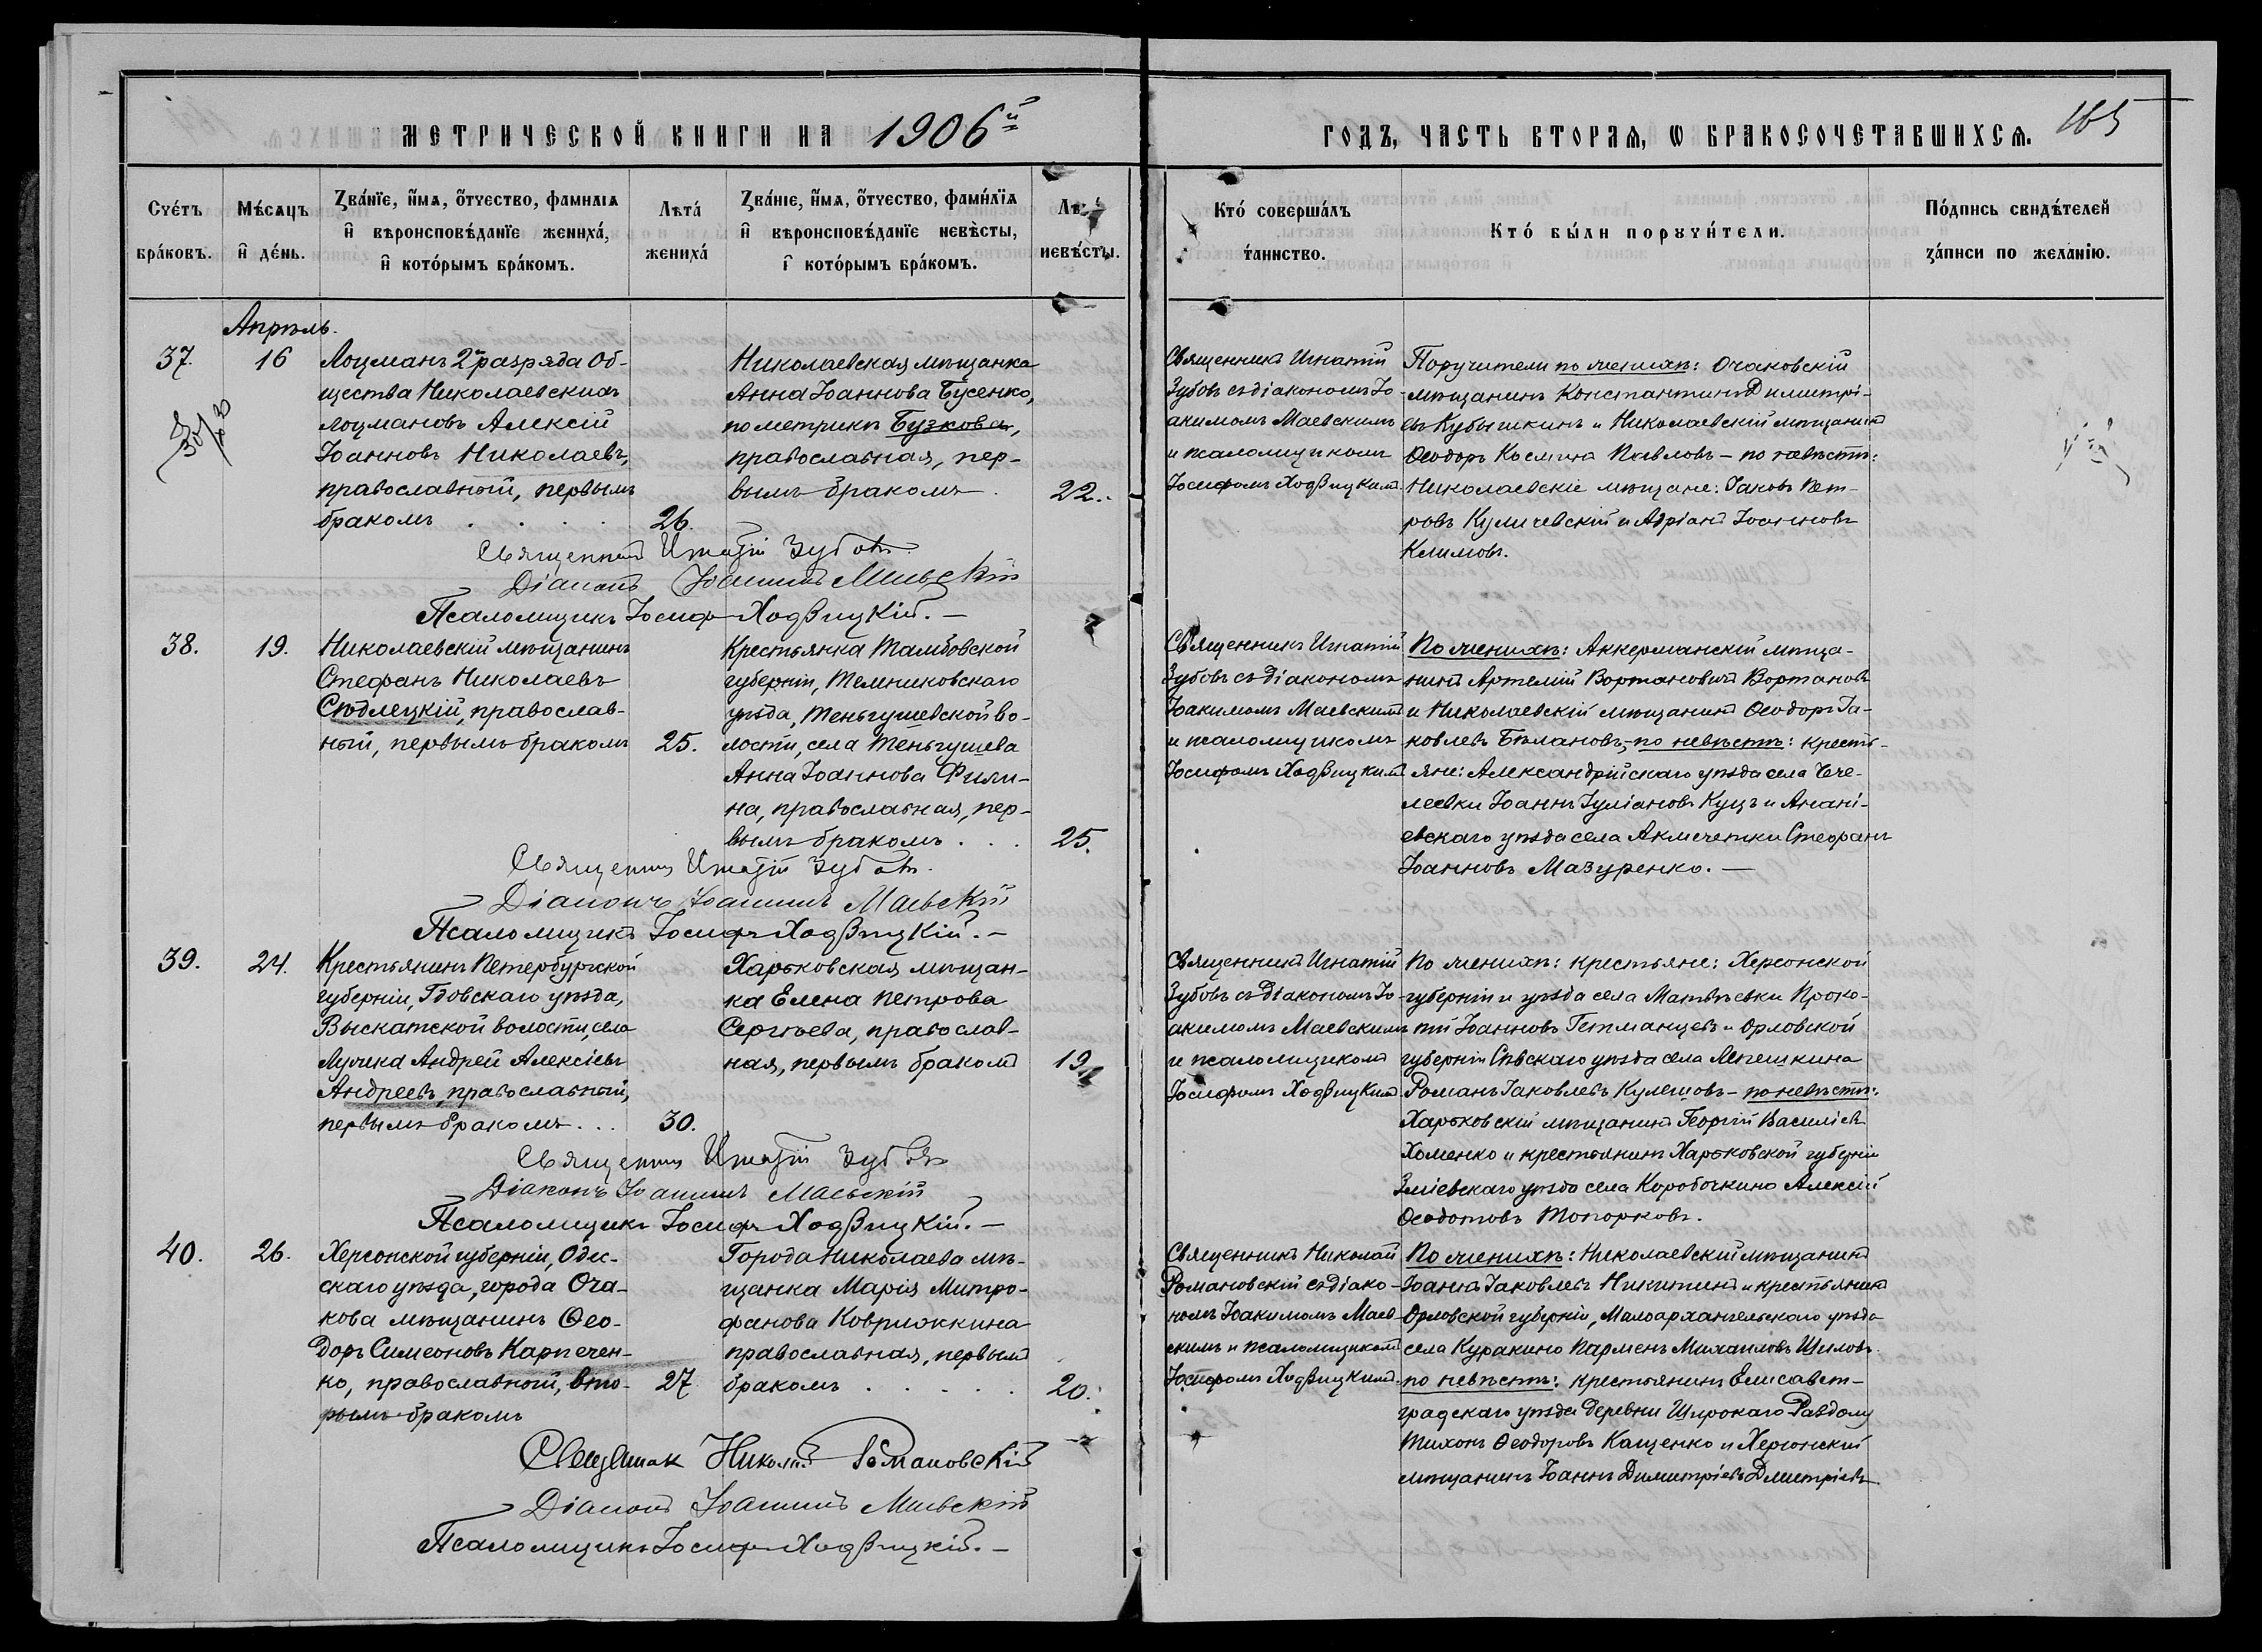 МЕТРИЧЕСКОЙ КНИГИ НА 1906й
ГОДЪ, ЧАСТЬ ВТОРАЯ, Ѡ БРАКОСОЧЕТАВШИХСЯ.
165
Счетъ браковъ.
Мѣсяцъ и день.
Званіе, имя, отчество, фамилія
и вѣроисповѣданіе жениха,
и которымъ бракомъ.
Лѣта
жениха
Званіе, имя, отчество, фамилія
и вѣроисповѣданіе невѣсты,
и которымъ бракомъ.
невѣсты.
Кто совершалъ
таинство.
Кто были поручители.
Подпись свидѣтелей
записи по желанію.
Апрѣль.
37.
16
Лоцманъ 2го разряда Об-
щества Николаевскихъ
лоцмановъ Алексій
Іоанновъ Николаевъ,
православный, первымъ
бракомъ . . . .
26.
Николаевская мѣщанка
Анна Іоаннова Бусенко,
по метрикѣ Бузкова,
православная, пер-
вымъ бракомъ.
22.
Священникъ Игнатій
Зубовъ съ діакономъ Іо-
акимомъ Маевскимъ
и псаломщикомъ
Іосифомъ Ходзицкимъ.
Поручители по женихѣ: Очаковскій
мѣщанинъ Константинъ Димитрі-
евъ Кубышкинъ и Николаевскій мѣщанинъ
Ѳеодоръ Косминъ Павловъ – по невѣстѣ:
Николаевскіе мѣщане: Іаковъ Пет-
ровъ Куличевскій и Адріанъ Іоанновъ
Климовъ.
Священникъ Игнатій Зубовъ
Діаконъ Іоакимъ Маевскій
Псаломщикъ Іосифъ Ходзицкій. –
38.
19.
Николаевскій мѣщанинъ
Стефанъ Николаевъ
Сѣдлецкій, православ-
ный, первымъ бракомъ
25.
Крестьянка Тамбовской
губерніи, Темниковскаго
уѣзда, Теньгушевской во-
лости, села Теньгушева
Анна Іоаннова Фили-
на, православная, пер-
вымъ бракомъ . . .
25.
Священникъ Игнатій
Зубовъ съ діакономъ
Іоакимомъ Маевскимъ
и псаломщикомъ
Іосифомъ Ходзицкимъ
По женихѣ: Аккерманскій мѣща-
нинъ Артемій Вортановичъ Вортановъ
и Николаевскій мѣщанинъ Ѳеодоръ Іа-
ковлевъ Бѣлановъ, – по невѣстѣ: кресть-
яне: Александрійскаго уѣзда села Чече-
леевки Іоаннъ Іуліановъ Куцъ и Анані-
евскаго уѣзда села Акмечетки Стефанъ
Іоанновъ Мазуренко. –
Священникъ Игнатій Зубовъ.
Діаконъ Іоакимъ Маевскій
Псаломщикъ Іосифъ Ходзицкій. –
39.
24.
Крестьянинъ Петербургской
губерніи, Гдовскаго уѣзда,
Выскатской волости, села
Лучка Андрей Алексіевъ
Андреевъ, православный,
первымъ бракомъ . . .
30.
Харьковская мѣщан-
ка Елена Петрова
Сергѣева, православ-
ная, первымъ бракомъ
19
Священникъ Игнатій
Зубовъ съ діакономъ Іо-
акимомъ Маевскимъ
и псаломщикомъ
Іосифомъ Ходзицкимъ
По женихѣ: крестьяне: Херсонской
губерніи и уѣзда села Матвѣевки Проко-
пій Іоанновъ Гетманцевъ и Орловской
губерніи Сѣвскаго уѣзда села Лепешкина
Романъ Іаковлевъ Кулешовъ – по невѣстѣ:
Харьковскій мѣщанинъ Георгій Василіевъ
Хоменко и крестьянинъ Харьковской губерніи
Зміевскаго уѣзда села Коробочкино Алексій
Ѳеодотовъ Топорковъ.
Священникъ Игнатій Зубовъ
Діаконъ Іоакимъ Маевскій
Псаломщикъ Іосифъ Ходзицкій. –
40.
26.
Херсонской губерніи, Одес-
скаго уѣзда, города Оча-
кова мѣщанинъ Ѳео-
доръ Симеоновъ Карпечен-
ко, православный, вто-
рымъ бракомъ
27
Города Николаева мѣ-
щанка Марія Митро-
фанова Коврижкина
православная, первымъ
бракомъ . . . . .
20.
Священникъ Николай
Романовскій съ діако-
номъ Іоакимомъ Маев-
скимъ и псаломщикомъ
Іосифомъ Ходзицкимъ.
По женихѣ: Николаевскій мѣщанинъ
Іоаннъ Іаковлевъ Никитинъ и крестьянинъ
Орловской губерніи, Малоархангельскаго уѣзда
села Куракино Парменъ Михаиловъ Шиловъ.
по невѣстѣ: крестьянинъ Елисавет-
градскаго уѣзда деревни Широкаго Раздолу
Тихонъ Ѳеодоровъ Кащенко и Херсонскій
мѣщанинъ Іоаннъ Димитріевъ Дмитріевъ
Священникъ Николай Романовскій
Діаконъ Іоакимъ Маевскій
Псаломщикъ Іосифъ Ходзицкій. –